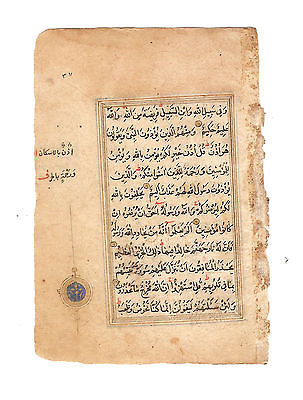 ٣٧
وَفِي سَبِيلِ اللهِ وَابْنِ السَّبِيلِ فَرِيضَةً مِنَ اللهِ وَاللهُ
عَلِيمٌ حَكِيمٌ وَمِنْهُمُ الَّذِينَ يُؤْذُونَ النَّبِيَّ وَيَقُولُونَ
هُوَ أُذُنٌ قُلْ أُذُنُ خَيْرٍ لَكُمْ يُؤْمِنُ بِاللهِ وَيُؤْمِنُ
لِلْمُؤْمِنِينَ وَرَحْمَةٌ لِلَّذِينَ آمَنُوا مِنْكُمْ وَالَّذِينَ
يُؤْذُونَ رَسُولَ اللهِ لَهُمْ عَذَابٌ أَلِيمٌ يَحْلِفُونَ بِاللهِ
لَكُمْ لِيُرْضُوكُمْ وَاللهُ وَرَسُولُهُ أَحَقُّ أَنْ يُرْضُوهُ إِنْ
كَانُوا مُؤْمِنِينَ أَلَمْ يَعْلَمُوا أَنَّهُ مَنْ يُحَادِدِ اللهَ وَرَسُولَهُ
فَأَنَّ لَهُ نَارَ جَهَنَّمَ خَالِدًا فِيهَا ذَلِكَ الْخِزْيُ الْعَظِيمُ
يَحْذَرُ الْمُنَافِقُونَ أَنْ تُنَزَّلَ عَلَيْهِمْ سُورَةٌ تُنَبِّئُهُمْ
بِمَا فِي قُلُوبِهِمْ قُلِ اسْتَهْزِؤُا إِنَّ اللهَ مُخْرِجٌ مَا تَحْذَرُونَ
وَلَئِنْ سَأَلْتَهُمْ لَيَقُولُنَّ إِنَّمَا كُنَّا نَخُوضُ وَنَلْعَبُ
أُذْنٌ بالاسكان
ورحمةٍ بالجر